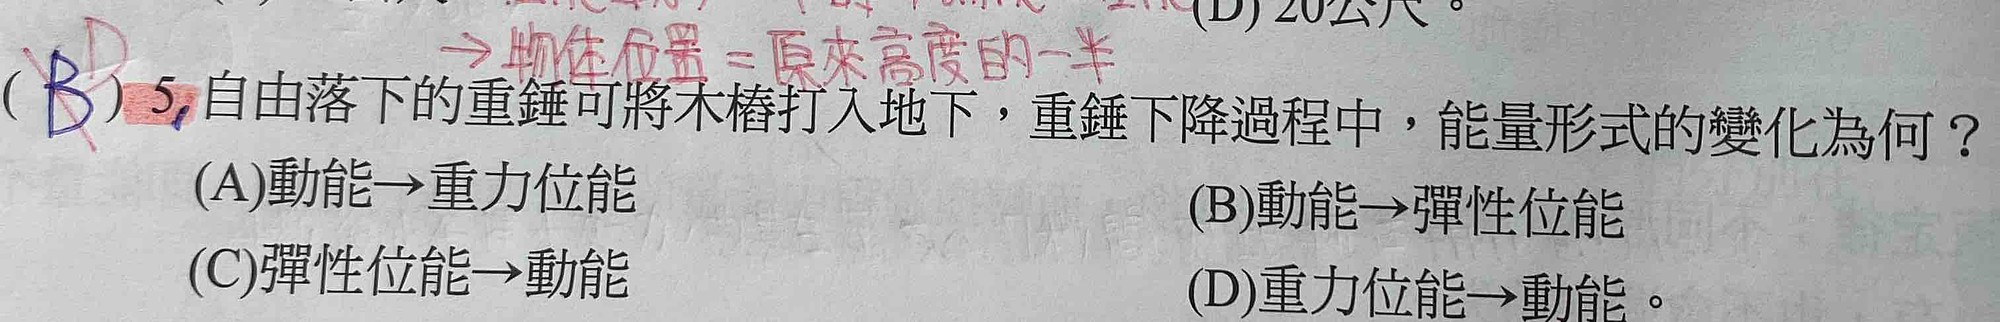 (D) 20公尺。
→物体位置=原來高度的一半
(B) D 5, 自由落下的重錘可將木樁打入地下，重錘下降過程中，能量形式的變化為何？
(A)動能→重力位能 (B)動能→彈性位能
(C)彈性位能→動能 (D)重力位能→動能。